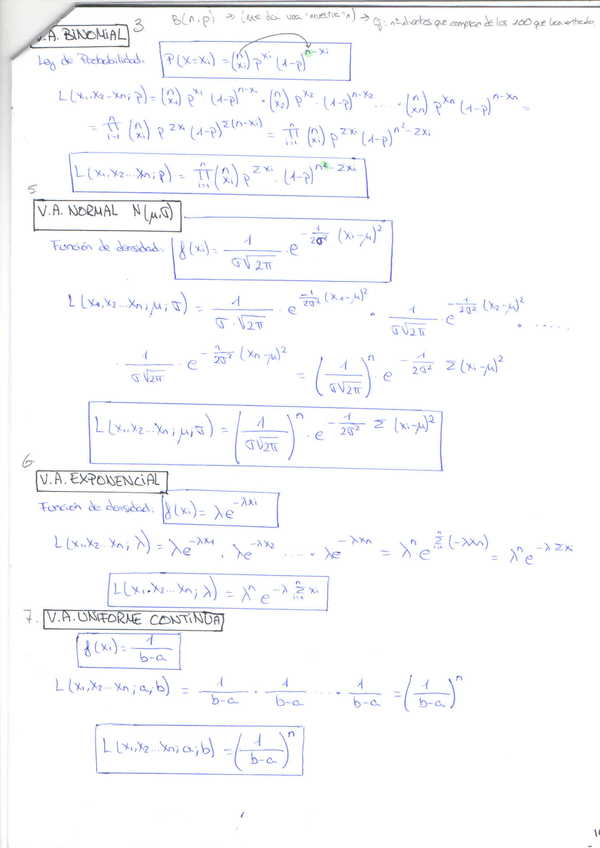 3. B(n,p) → (me da una "muestra" n) →
V.A. BINOMIAL
Ley de Probabilidad: P(X=xᵢ) = (n xᵢ) p^xᵢ (1-p)^n-xᵢ
L(x₁,x₂...xₙ;p) = (n x₁) p^x₁ (1-p)^n-x₁ · (n x₂) p^x₂ · (1-p)^n-x₂ ..... · (n xₙ) p^xₙ (1-p)^n-xₙ =
= ∏ᵢ₌₁ⁿ (n xᵢ) p^Σxᵢ (1-p)^Σ(n-xᵢ) = ∏ᵢ₌₁ⁿ (n xᵢ) p^Σxᵢ (1-p)^n²-Σxᵢ
L(x₁,x₂...xₙ;p) = ∏ᵢ₌₁ⁿ (n xᵢ) p^Σxᵢ · (1-p)^n²-Σxᵢ
5.
V.A. NORMAL N(μ,σ)
Función de densidad: f(xᵢ) = 1/σ√2π · e^-1/2σ² (xᵢ-μ)²
L(x₁,x₂...xₙ;μ,σ) = 1/σ·√2π · e^-1/2σ² (x₁-μ)² · 1/σ√2π · e^-1/2σ² (x₂-μ)² · .....
· 1/σ√2π · e^-1/2σ² (xₙ-μ)² = (1/σ√2π)ⁿ · e^-1/2σ² Σ(xᵢ-μ)²
L(x₁,x₂...xₙ;μ,σ) = (1/σ√2π)ⁿ · e^-1/2σ² Σ(xᵢ-μ)²
6.
V.A. EXPONENCIAL
Función de densidad: f(xᵢ) = λe^-λxᵢ
L(x₁,x₂...xₙ;λ) = λe^-λx₁ · λe^-λx₂ ..... · λe^-λxₙ = λⁿ e^Σᵢ₌₁ⁿ(-λxₙ) = λⁿ e^-λΣxᵢ
L(x₁,x₂...xₙ;λ) = λⁿ e^-λ Σᵢ₌₁ⁿ xᵢ
7. V.A. UNIFORME CONTINUA
f(xᵢ) = 1/b-a
L(x₁,x₂...xₙ;a,b) = 1/b-a · 1/b-a ... · 1/b-a = (1/b-a)ⁿ
L(x₁,x₂...xₙ;a;b) = (1/b-a)ⁿ